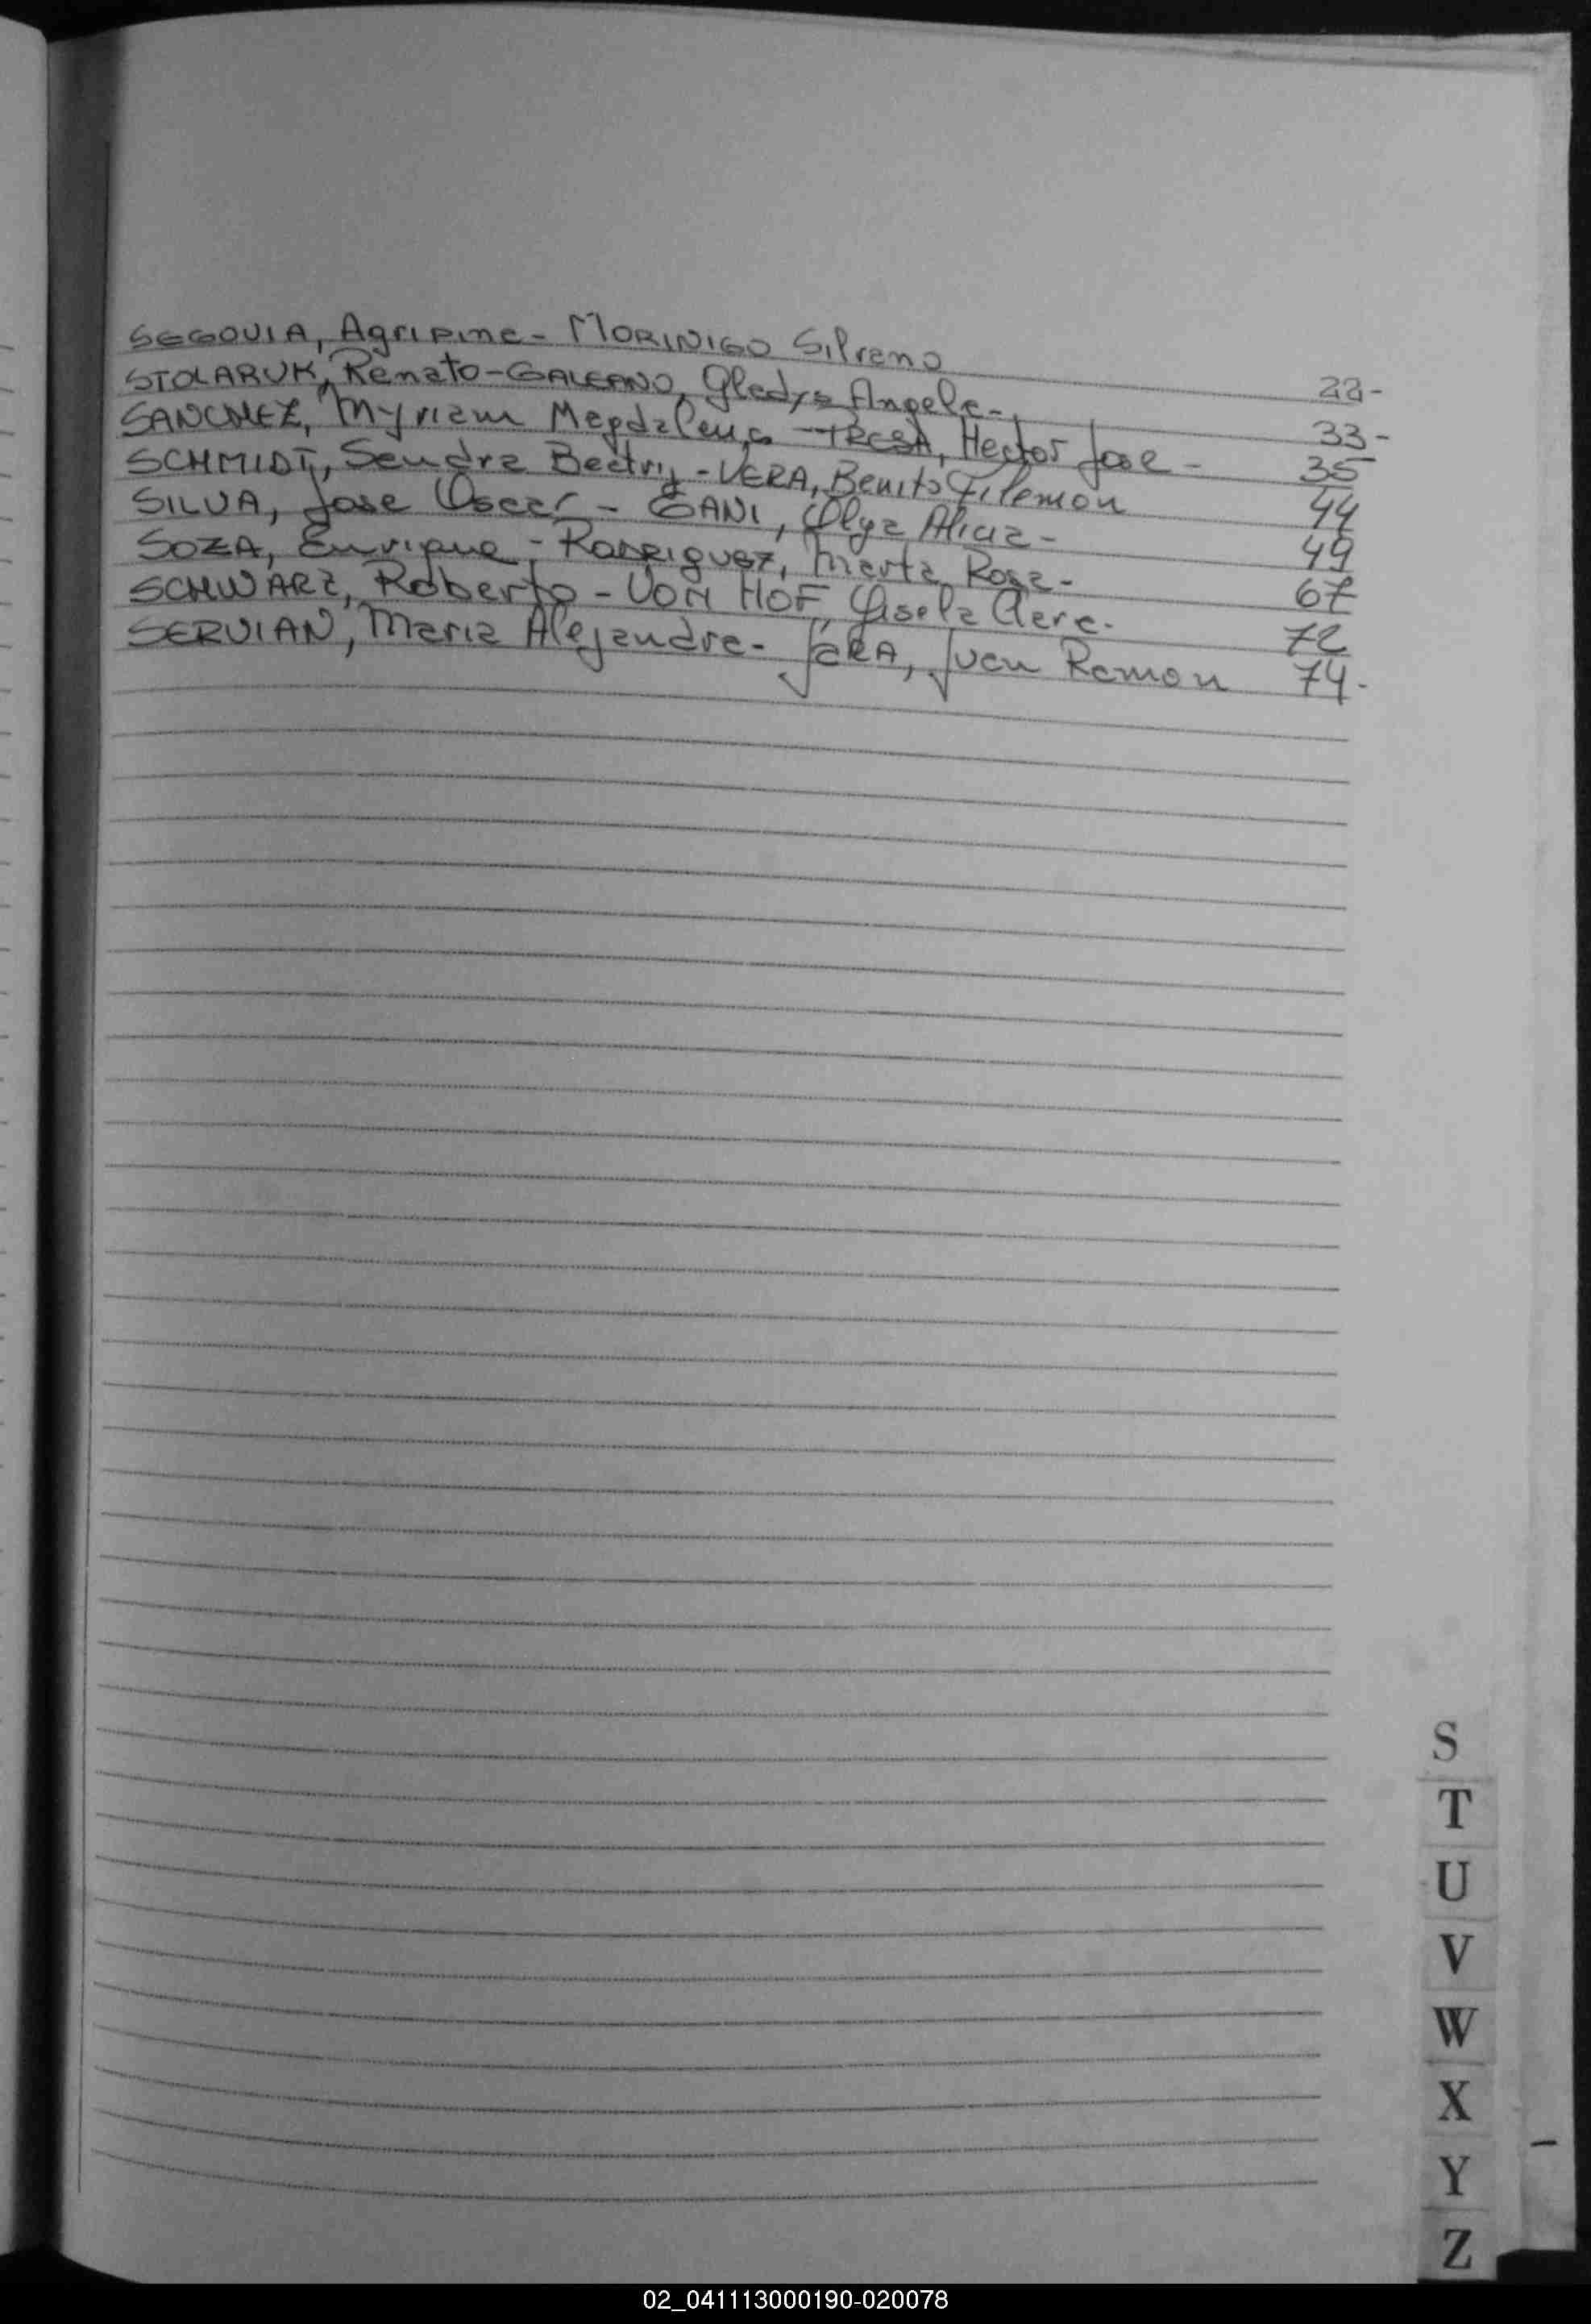 SEGOVIA, Agripina - MORINIGO Silvano 22-
STOLARUK, Renato - GALEANO, Gladys Angela - 33-
SANCHEZ, Myriam Magdalena - TROSA, Hector Jose - 35
SCHMIDT, Sandra Beatriz - VERA, Benito Filemon 44
SILVA, Jose Oscar - GANI, Olga Alicia - 49
SOZA, Enrique - RODRIGUEZ, Marta Rosa - 67
SCHWARZ, Roberto - VON HOF, Gisela Clara - 72
SERVIAN, Maria Alejandra - JARA, Juan Ramon 74-
S
T
U
V
W
X
Y
Z
02_041113000190-020078